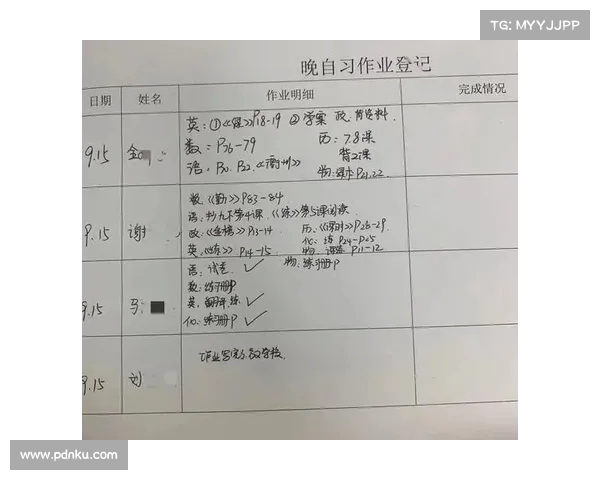 TG: MYYJJPP
晚自习作业登记
日期 姓名 作业明细 完成情况
9.15 金
英:①《》P18-19 ②学案 政:背资料
数:P76-79 历:7.8课
背2课
语:P20.P22.《衡州》 物:课本P21.22
9.15 谢
数:《勤》P83-84
语:抄九下第4课.《练》第5课阅读
政:《金榜》P13-14 历:《课时》P26-29
化:练 P24-P25
英:《练》P14-15 物: P11-12
9.15 马
语:试卷 ✓ 物:练习册P
数:练习册P
英: 练 ✓
化:练习册P ✓
9.15 刘
作业写完
www.pdnku.com